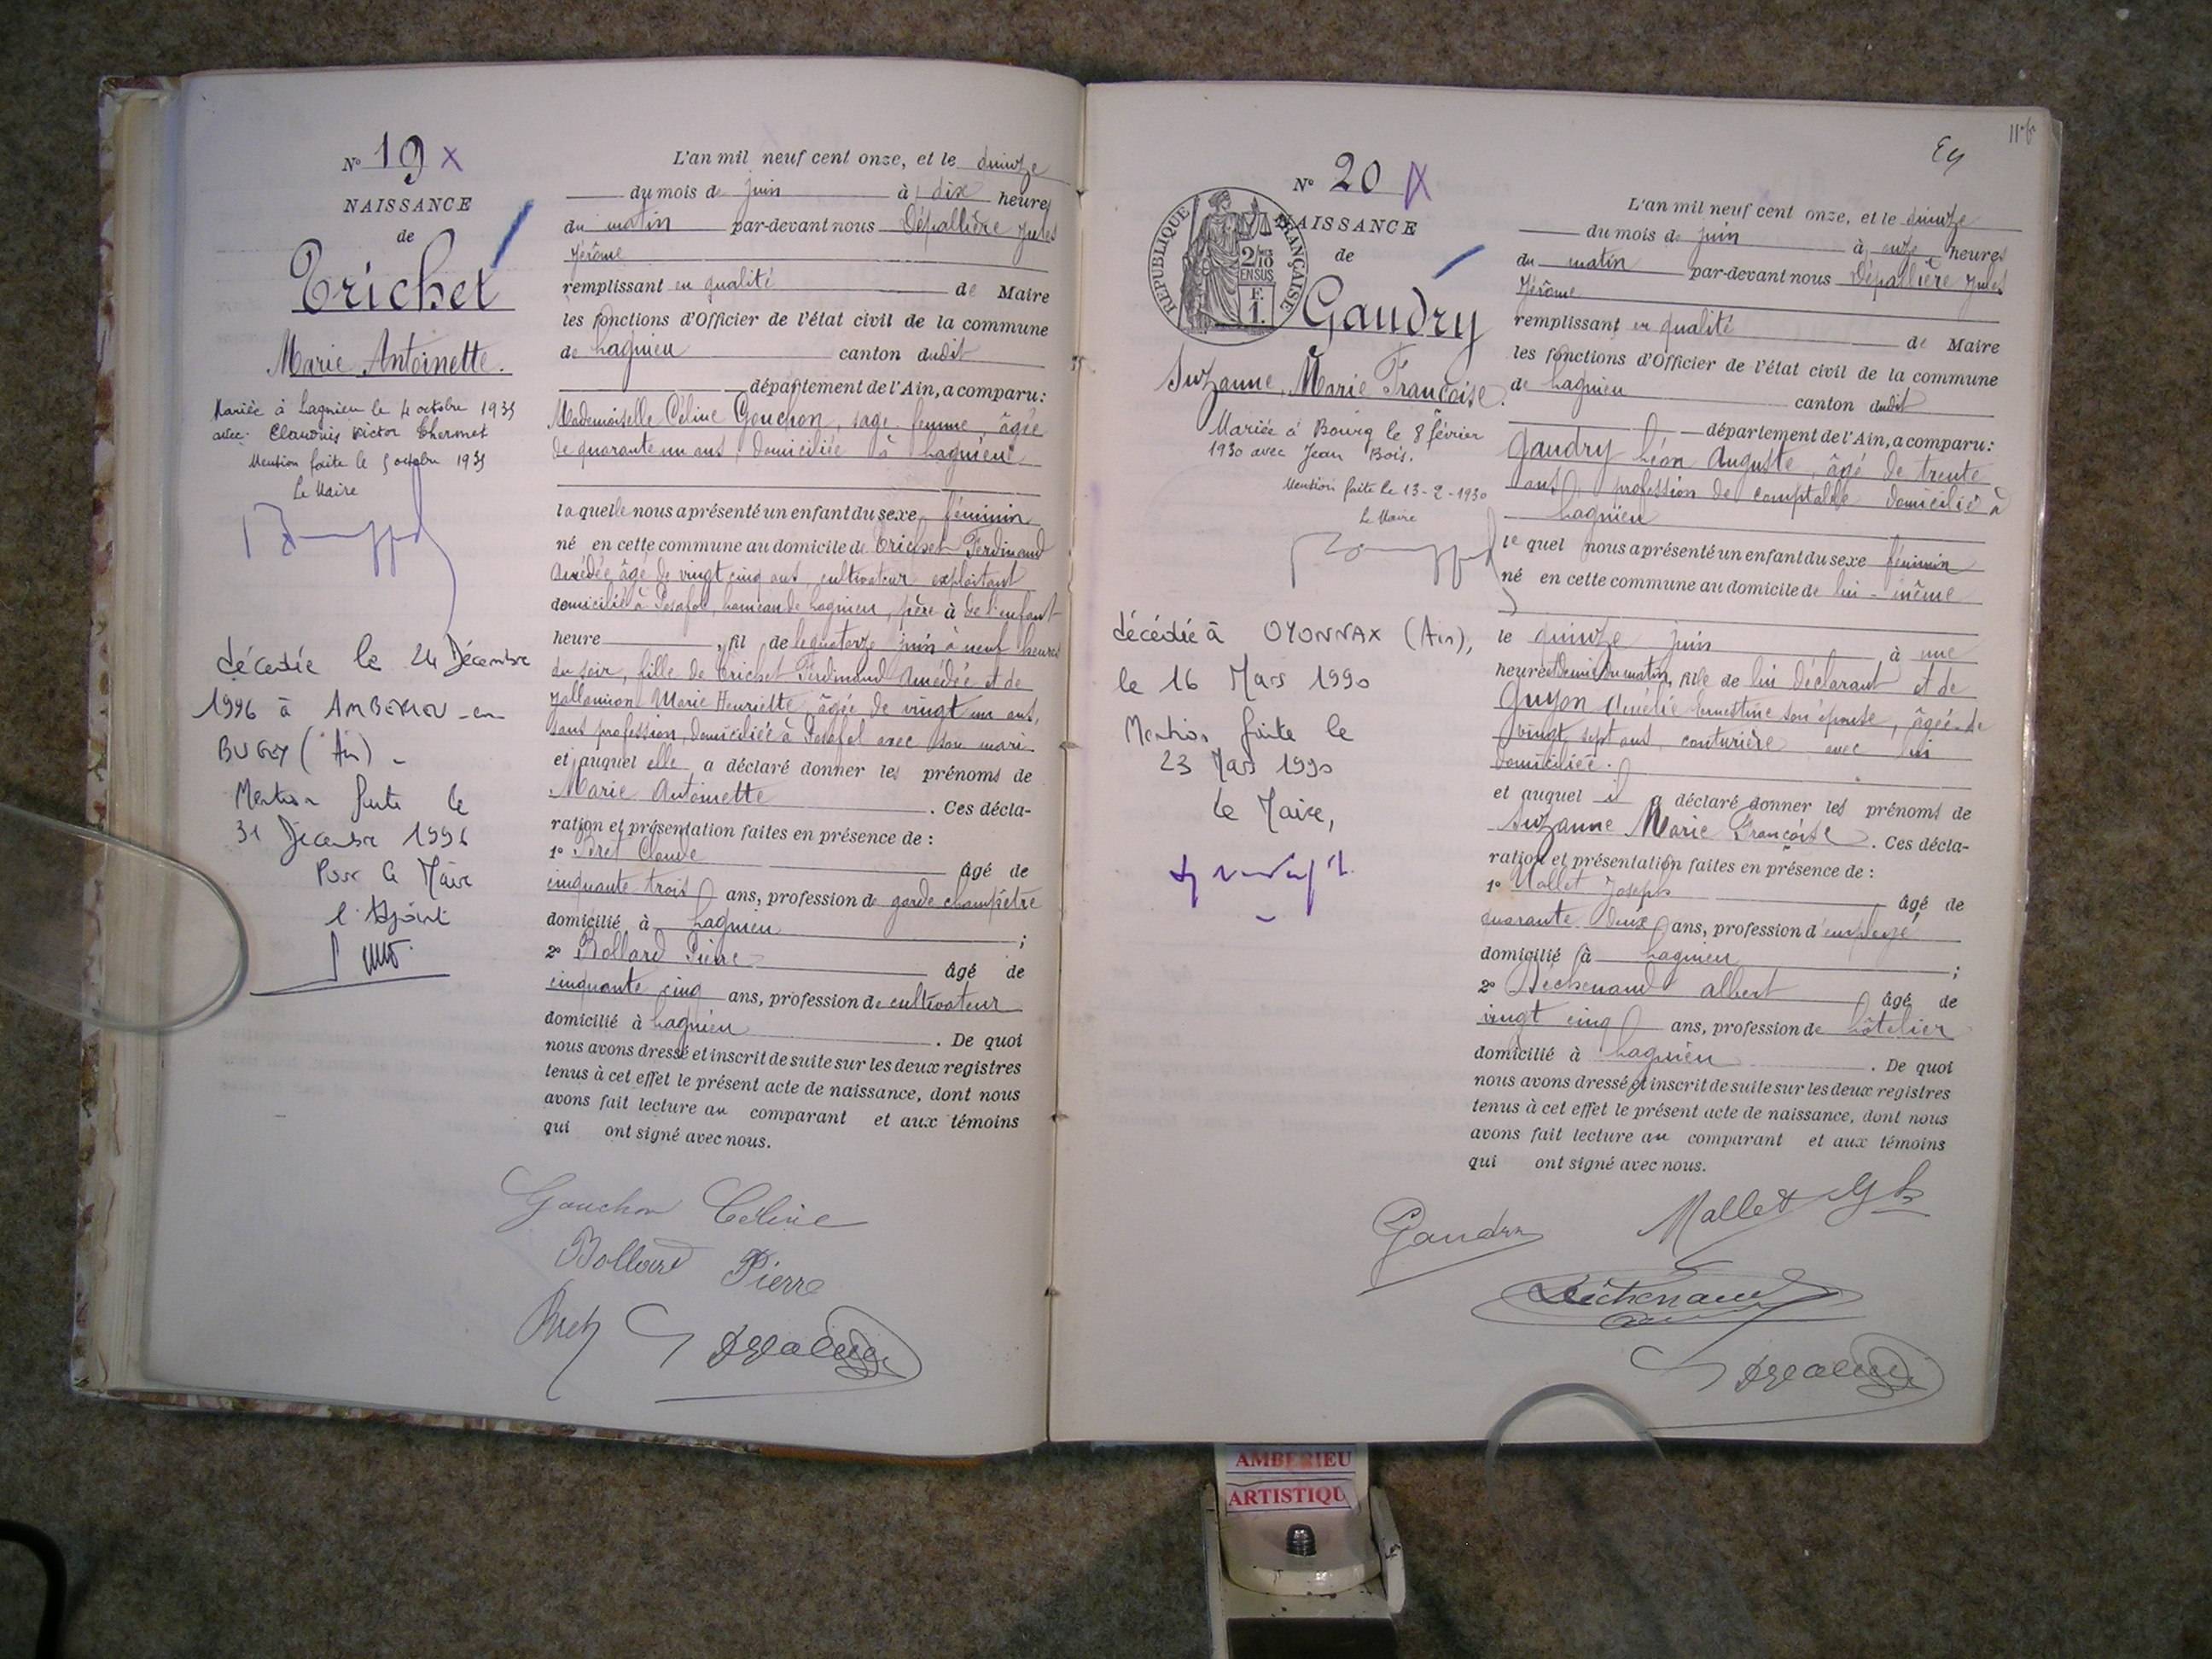 N° 19 x
NAISSANCE
de
Trichet
Marie Antoinette.
Mariée à Lagnieu le 4 octobre 1935
avec Claudius Victor Thermet
Mention faite le 5 octobre 1935
Le Maire
décédée le 24 Décembre
1996 à AMBERIEU-en-
BUGEY (Ain) -
Mention faite le
31 Décembre 1996
Pour le Maire
l'Adjoint
L'an mil neuf cent onze, et le quinze
du mois de juin à dix heures
du matin par-devant nous Dépallière Jules
Jérôme
remplissant en qualité de Maire
les fonctions d'Officier de l'état civil de la commune
de Lagnieu canton dudit
département de l'Ain, a comparu:
Mademoiselle Céline Gouchon, sage-femme, âgée
de quarante un ans, domiciliée à Lagnieu
laquelle nous a présenté un enfant du sexe féminin
né en cette commune au domicile de Trichet Ferdinand
Amédée, âgé de vingt cinq ans, cultivateur exploitant
domicilié à Posafol, hameau de Lagnieu, père à de l'enfant
heure , fil de le quatorze juin à neuf heures
du soir, fille de Trichet Ferdinand Amédée et de
Marie Henriette, âgée de vingt un ans,
sans profession, domiciliée à Posafol avec son mari
et auquel elle a déclaré donner les prénoms de
Marie Antoinette . Ces décla-
ration et présentation faites en présence de :
1° Pret Claude âgé de
cinquante trois ans, profession de garde champêtre
domicilié à Lagnieu ;
2° Bollard Pierre âgé de
cinquante cinq ans, profession de cultivateur
domicilié à Lagnieu . De quoi
nous avons dressé et inscrit de suite sur les deux registres
tenus à cet effet le présent acte de naissance, dont nous
avons fait lecture au comparant et aux témoins
qui ont signé avec nous.
Gouchon Céline
Bollard Pierre
Pret
N° 20
RÉPUBLIQUE FRANÇAISE
2/10 EN SUS
F. 1.
NAISSANCE
de
Gaudry
Suzanne, Marie Françoise.
Mariée à Bourg le 8 février
1930 avec Jean Bois.
Mention faite le 13-2-1930
Le Maire
décédée à OYONNAX (Ain),
le 16 Mars 1990
Mention faite le
23 Mars 1990
Le Maire,
L'an mil neuf cent onze, et le quinze
du mois de juin à onze heures
du matin par-devant nous Dépallière Jules
Jérôme
remplissant en qualité de Maire
les fonctions d'Officier de l'état civil de la commune
de Lagnieu canton dudit
département de l'Ain, a comparu:
Gaudry Léon Auguste, âgé de trente
ans, profession de comptable domicilié à
Lagnieu
lequel nous a présenté un enfant du sexe féminin
né en cette commune au domicile de lui-même
le quinze juin à une
heure et demie du matin, fille de lui déclarant et de
Guyon Amélie Ernestine son épouse, âgée de
vingt sept ans, couturière avec lui
domiciliée.
et auquel il a déclaré donner les prénoms de
Suzanne Marie Françoise . Ces décla-
ration et présentation faites en présence de :
1° Mallet Joseph âgé de
quarante deux ans, profession d'employé
domicilié à Lagnieu ;
2° Déchenaud Albert âgé de
vingt cinq ans, profession de hôtelier
domicilié à Lagnieu . De quoi
nous avons dressé et inscrit de suite sur les deux registres
tenus à cet effet le présent acte de naissance, dont nous
avons fait lecture au comparant et aux témoins
qui ont signé avec nous.
Gaudry Mallet
Déchenaud
AMBERIEU
ARTISTIQU